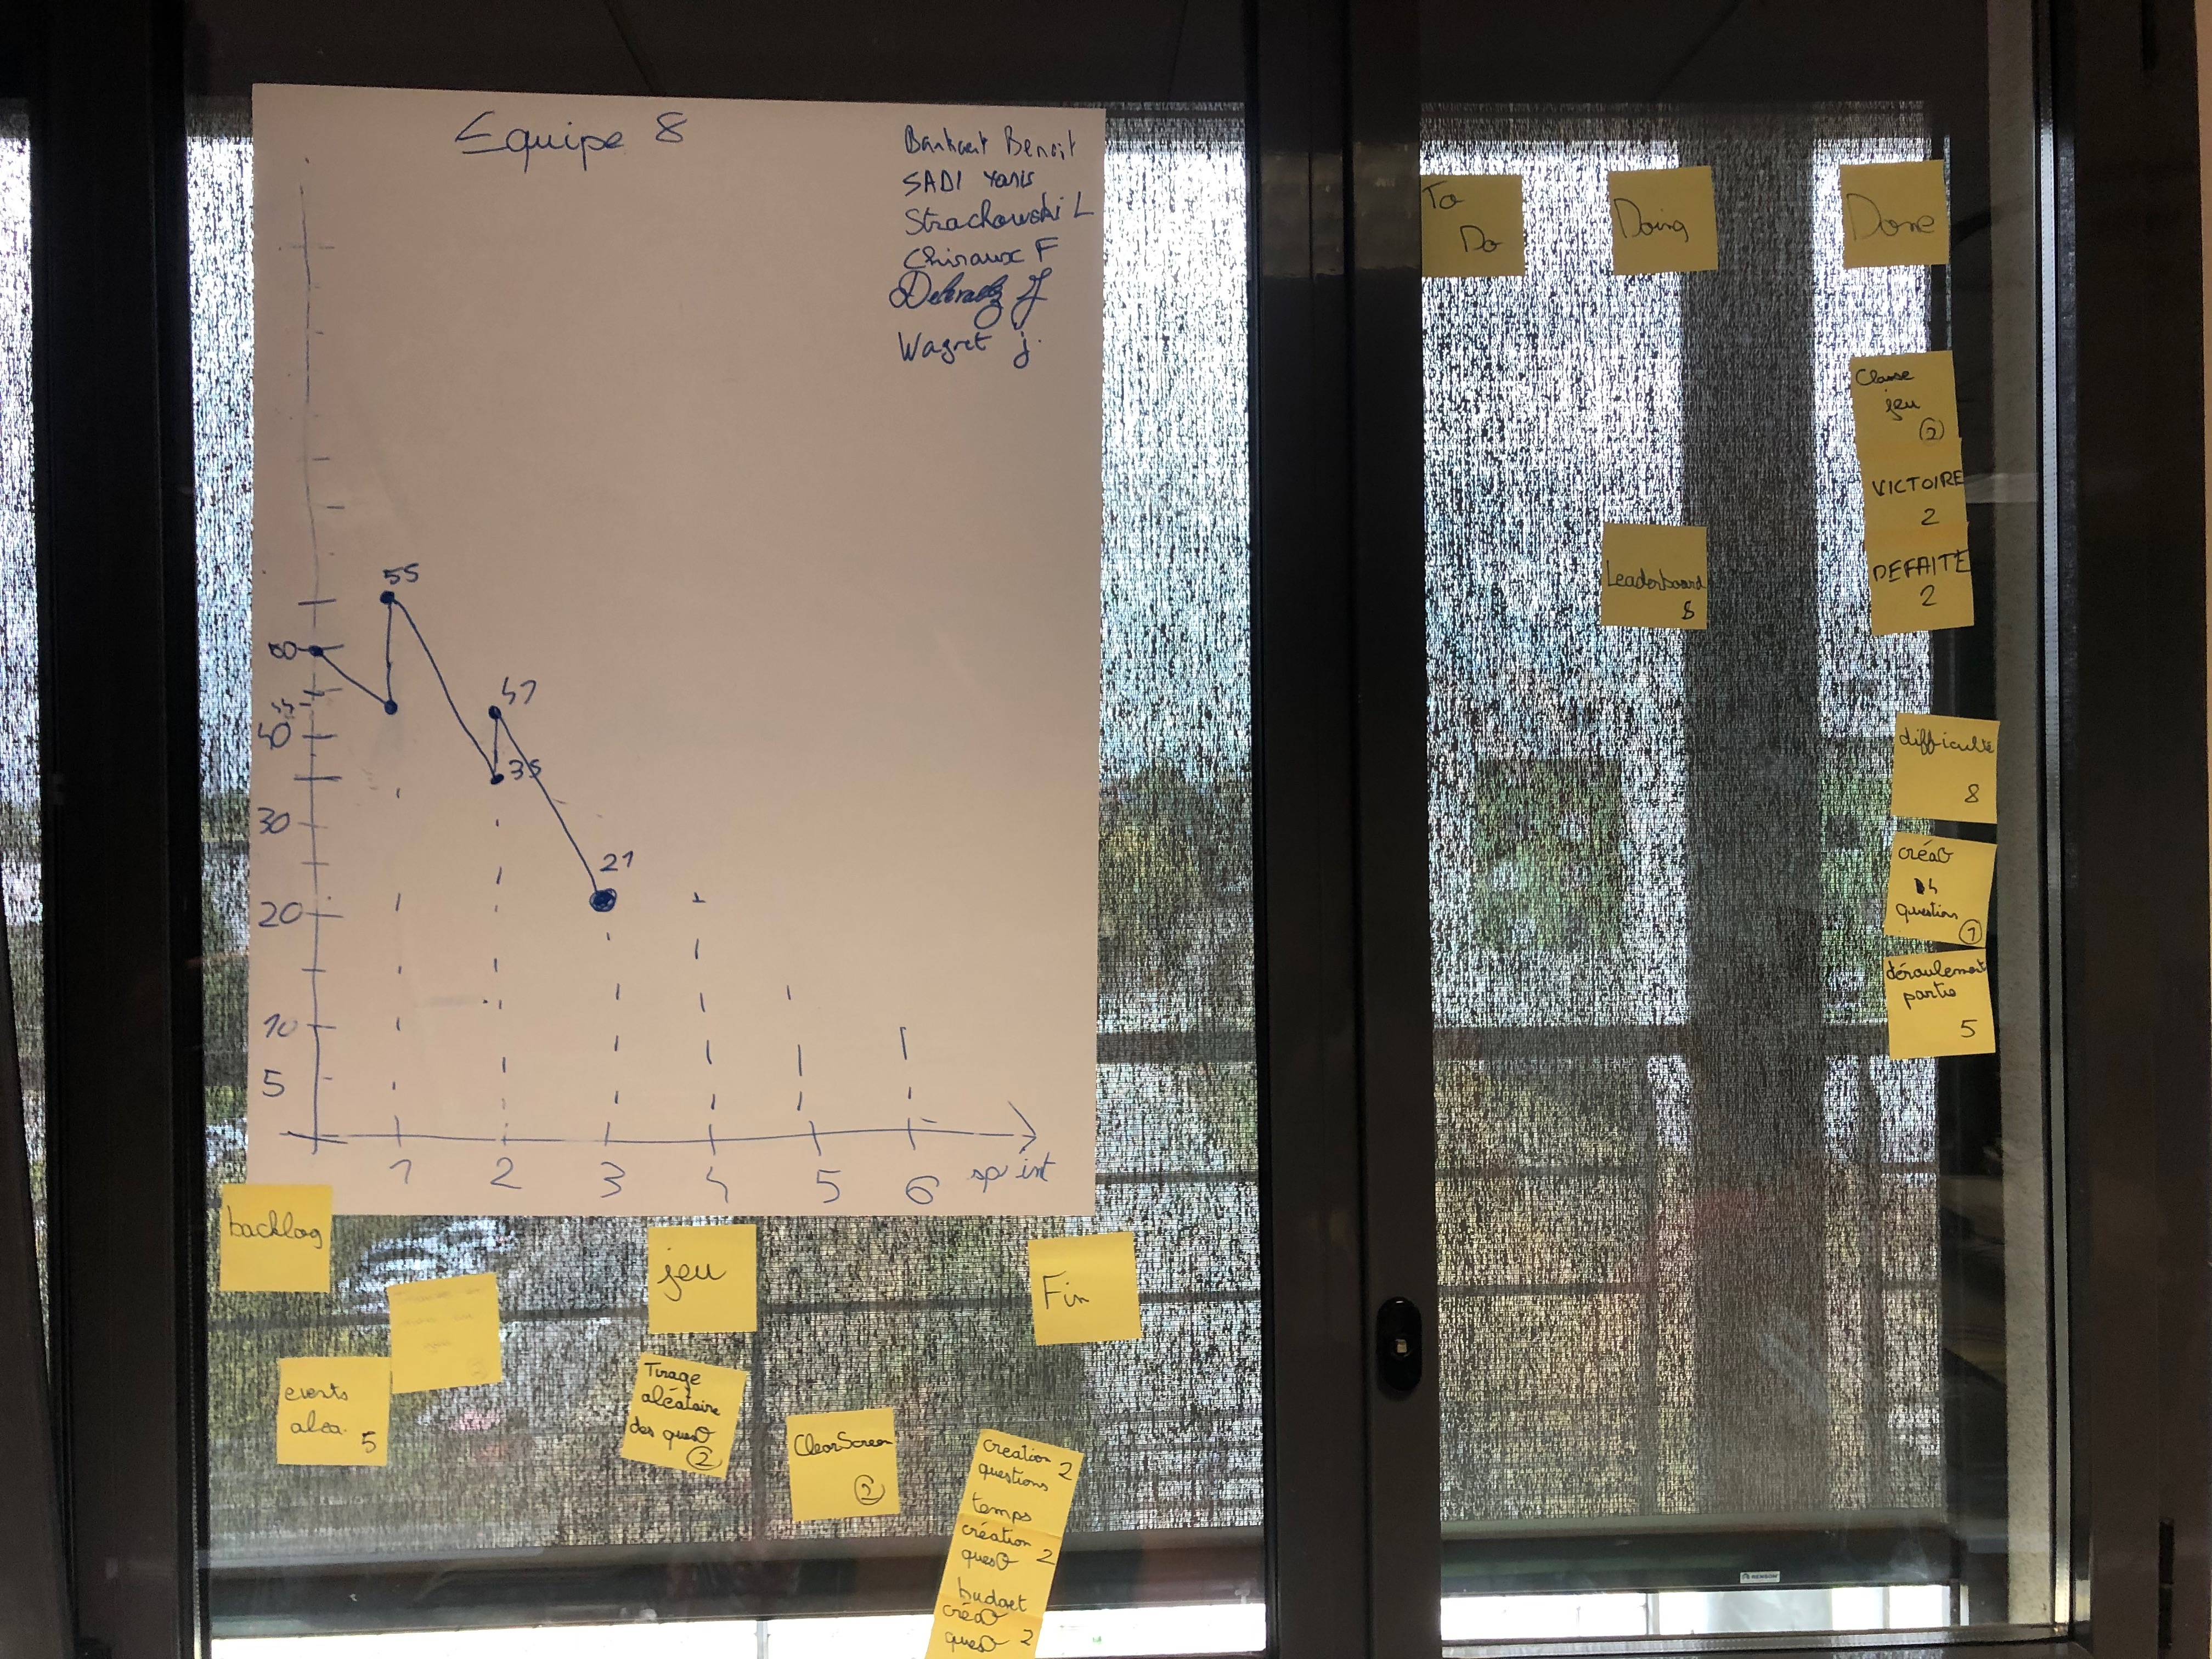 Equipe 8
Benoit
SADI Yanis
Strachowski L
Chiraux F
J
Wagret j.
55
50
47
45
40
35
30
21
20
10
5
1 2 3 4 5 6 sprint
backlog
events
aléa. 5
jeu
Tirage
aléatoire
des quesO
2
ClearScreen
2
Fin
creation 2
questions
temps
création
quesO 2
budget
créaO
quesO 2
To
Do
Doing
Done
Leaderboard
8
Classe
jeu
2
VICTOIRE
2
DEFAITE
2
difficulté
8
créaO
4
question
1
déroulement
partie
5
RENSON